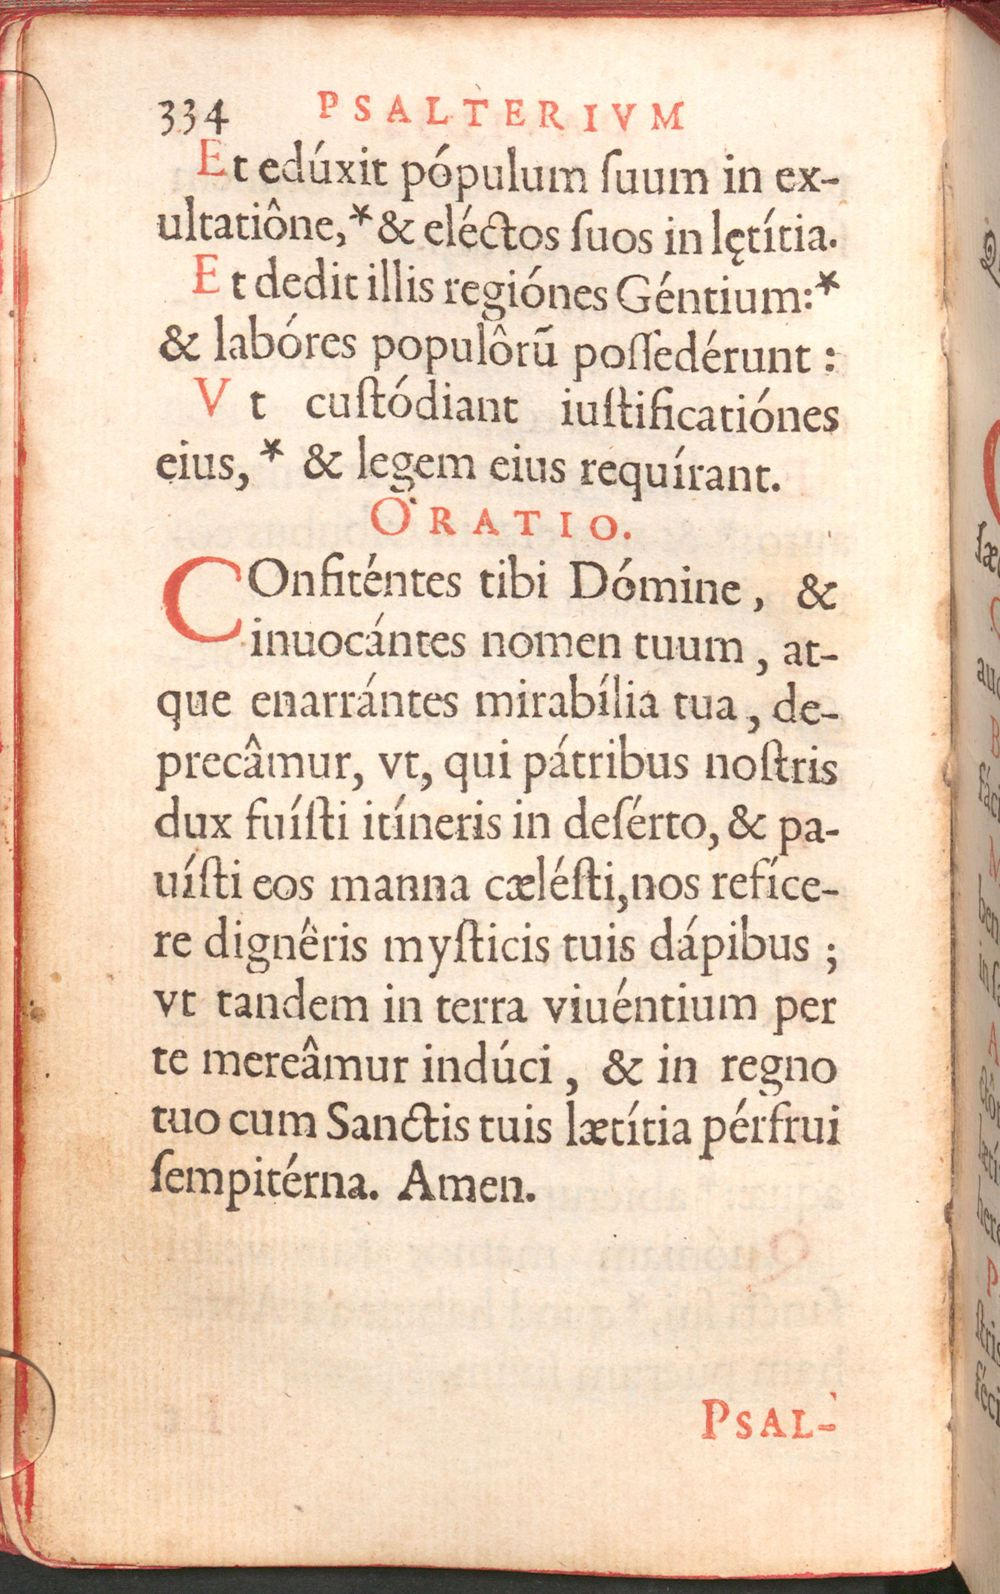 334 PSALTERIVM
Et edúxit pópulum ſuum in ex-
ultatiône,* & eléctos ſuos in lętítia.
Et dedit illis regiónes Géntium:*
& labóres populôrũ poſſedérunt :
Vt cuſtódiant iuſtificatiónes
eius, * & legem eius requírant.
ORATIO.
COnfiténtes tibi Dómine, &
inuocántes nomen tuum, at-
que enarrántes mirabília tua, de-
precâmur, vt, qui pátribus noſtris
dux fuíſti itíneris in deſérto, & pa-
uíſti eos manna cæléſti, nos refíce-
re dignêris myſticis tuis dápibus ;
vt tandem in terra viuéntium per
te mereâmur indúci, & in regno
tuo cum Sanctis tuis lætítia pérfrui
ſempitérna. Amen.
PSAL-